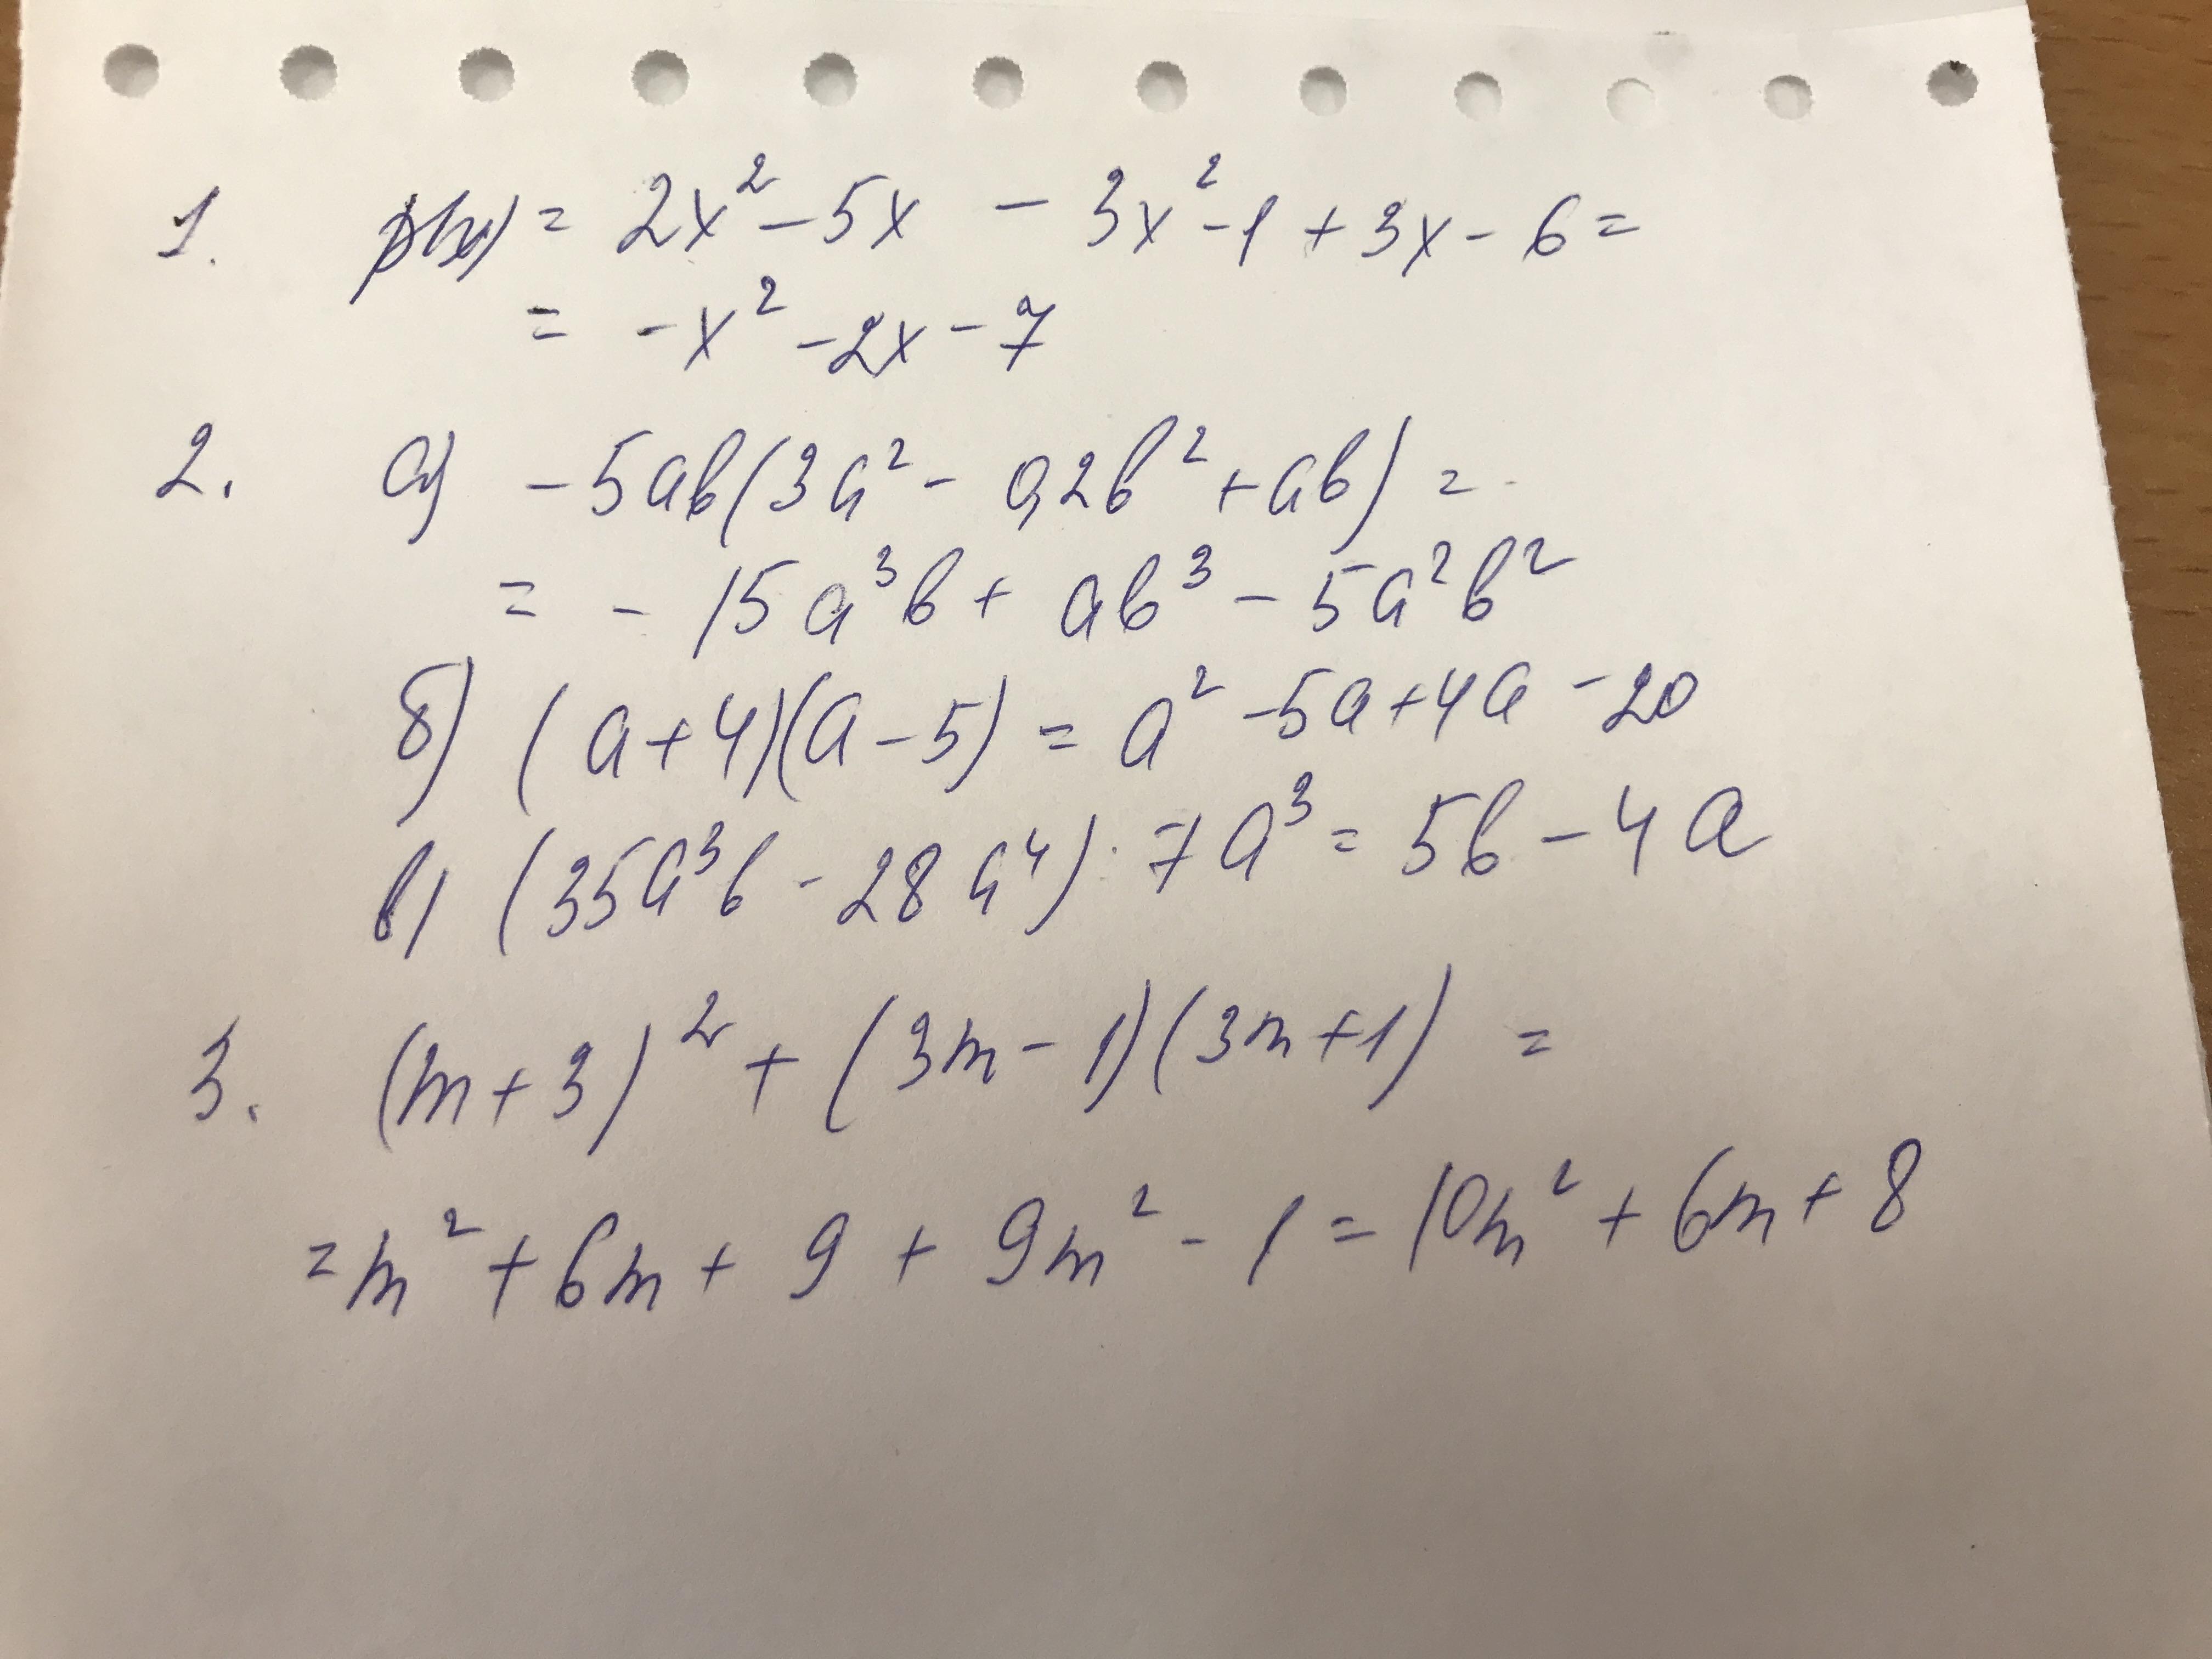 1. p(x) = 2x² - 5x - 3x² - 1 + 3x - 6 =
= -x² - 2x - 7
2. а) -5ab(3a² - 0,2b² + ab) =
= - 15a³b + ab³ - 5a²b²
б) (a+4)(a-5) = a² - 5a + 4a - 20
в) (35a³b - 28a⁴) : 7a³ = 5b - 4a
3. (m+3)² + (3m-1)(3m+1) =
= m² + 6m + 9 + 9m² - 1 = 10m² + 6m + 8